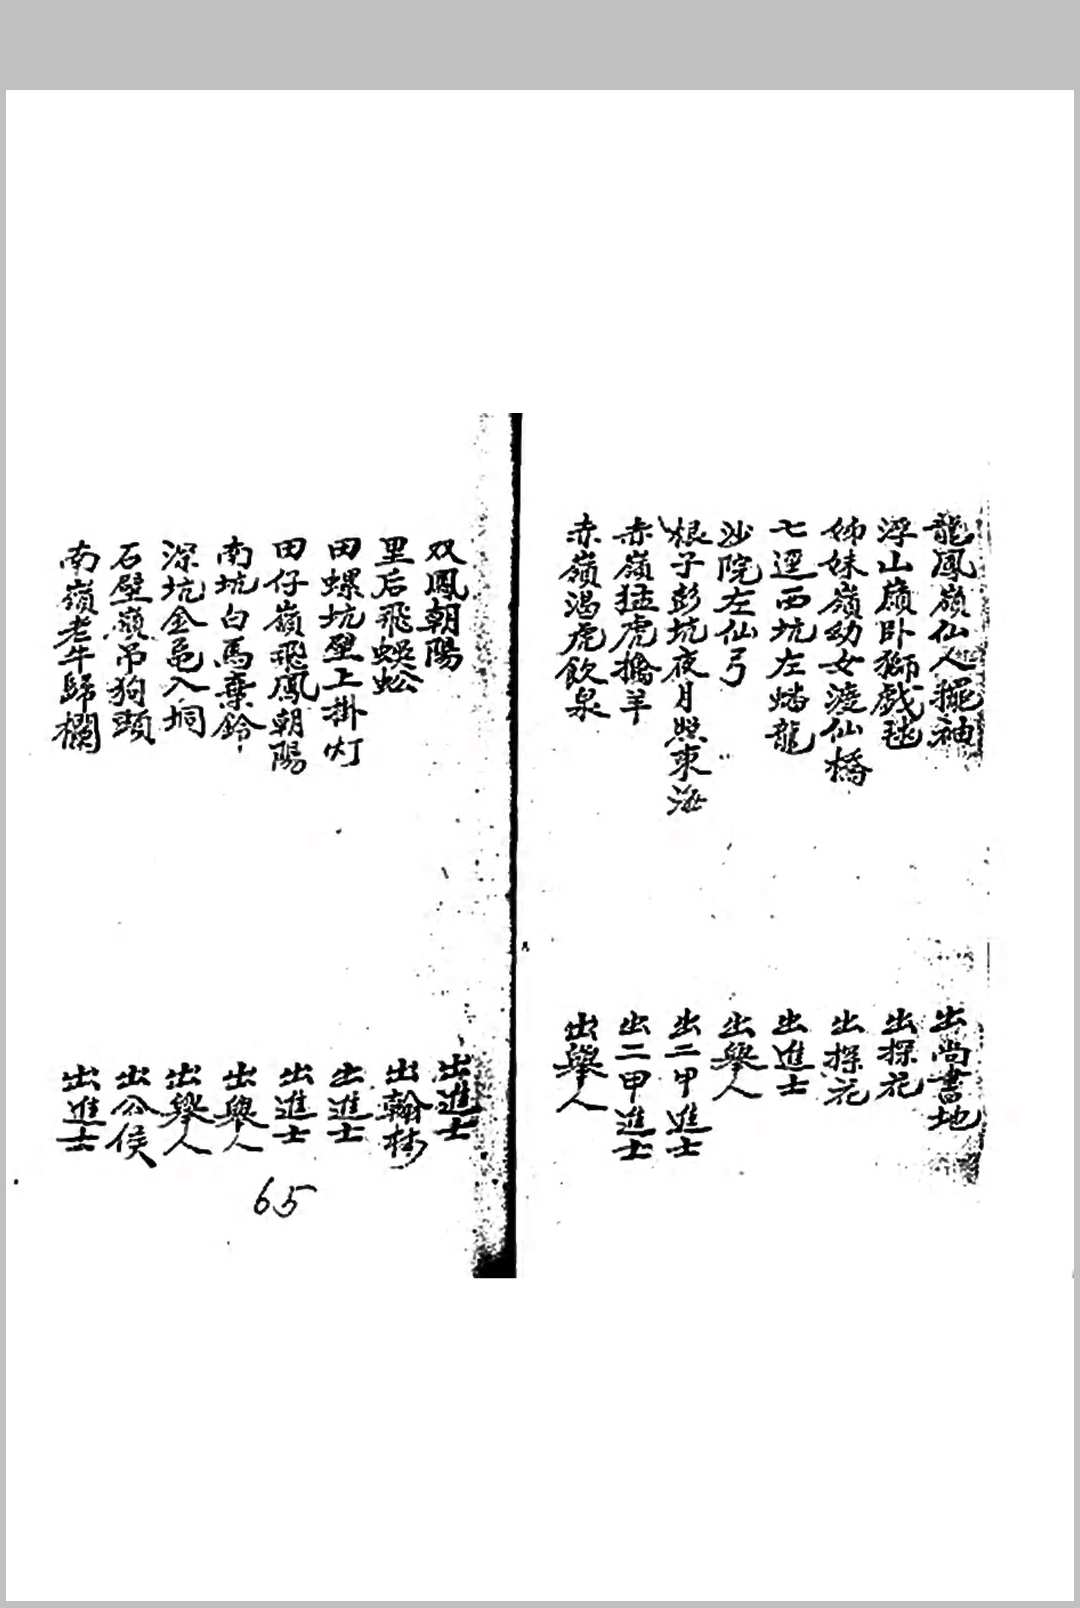 龍鳳嶺仙人擺袖 出尚書地
浮山嶺卧獅戲毬 出探花
姊妹嶺幼女渡仙橋 出探花
七逕西坑左蟠龍 出進士
沙院左仙弓 出舉人
根子彭坑夜月照東海 出二甲進士
赤嶺猛虎擒羊 出二甲進士
赤嶺渴虎飲泉 出舉人
双鳳朝陽 出進士
里后飛蜈蚣 出翰林
田螺坑壁上掛灯 出進士
田仔嶺飛鳳朝陽 出進士
南坑白馬棄鈴 出舉人
深坑金龟入垌 出舉人
石壁嶺吊狗頭 出公侯
南嶺老牛歸欄 出進士
65